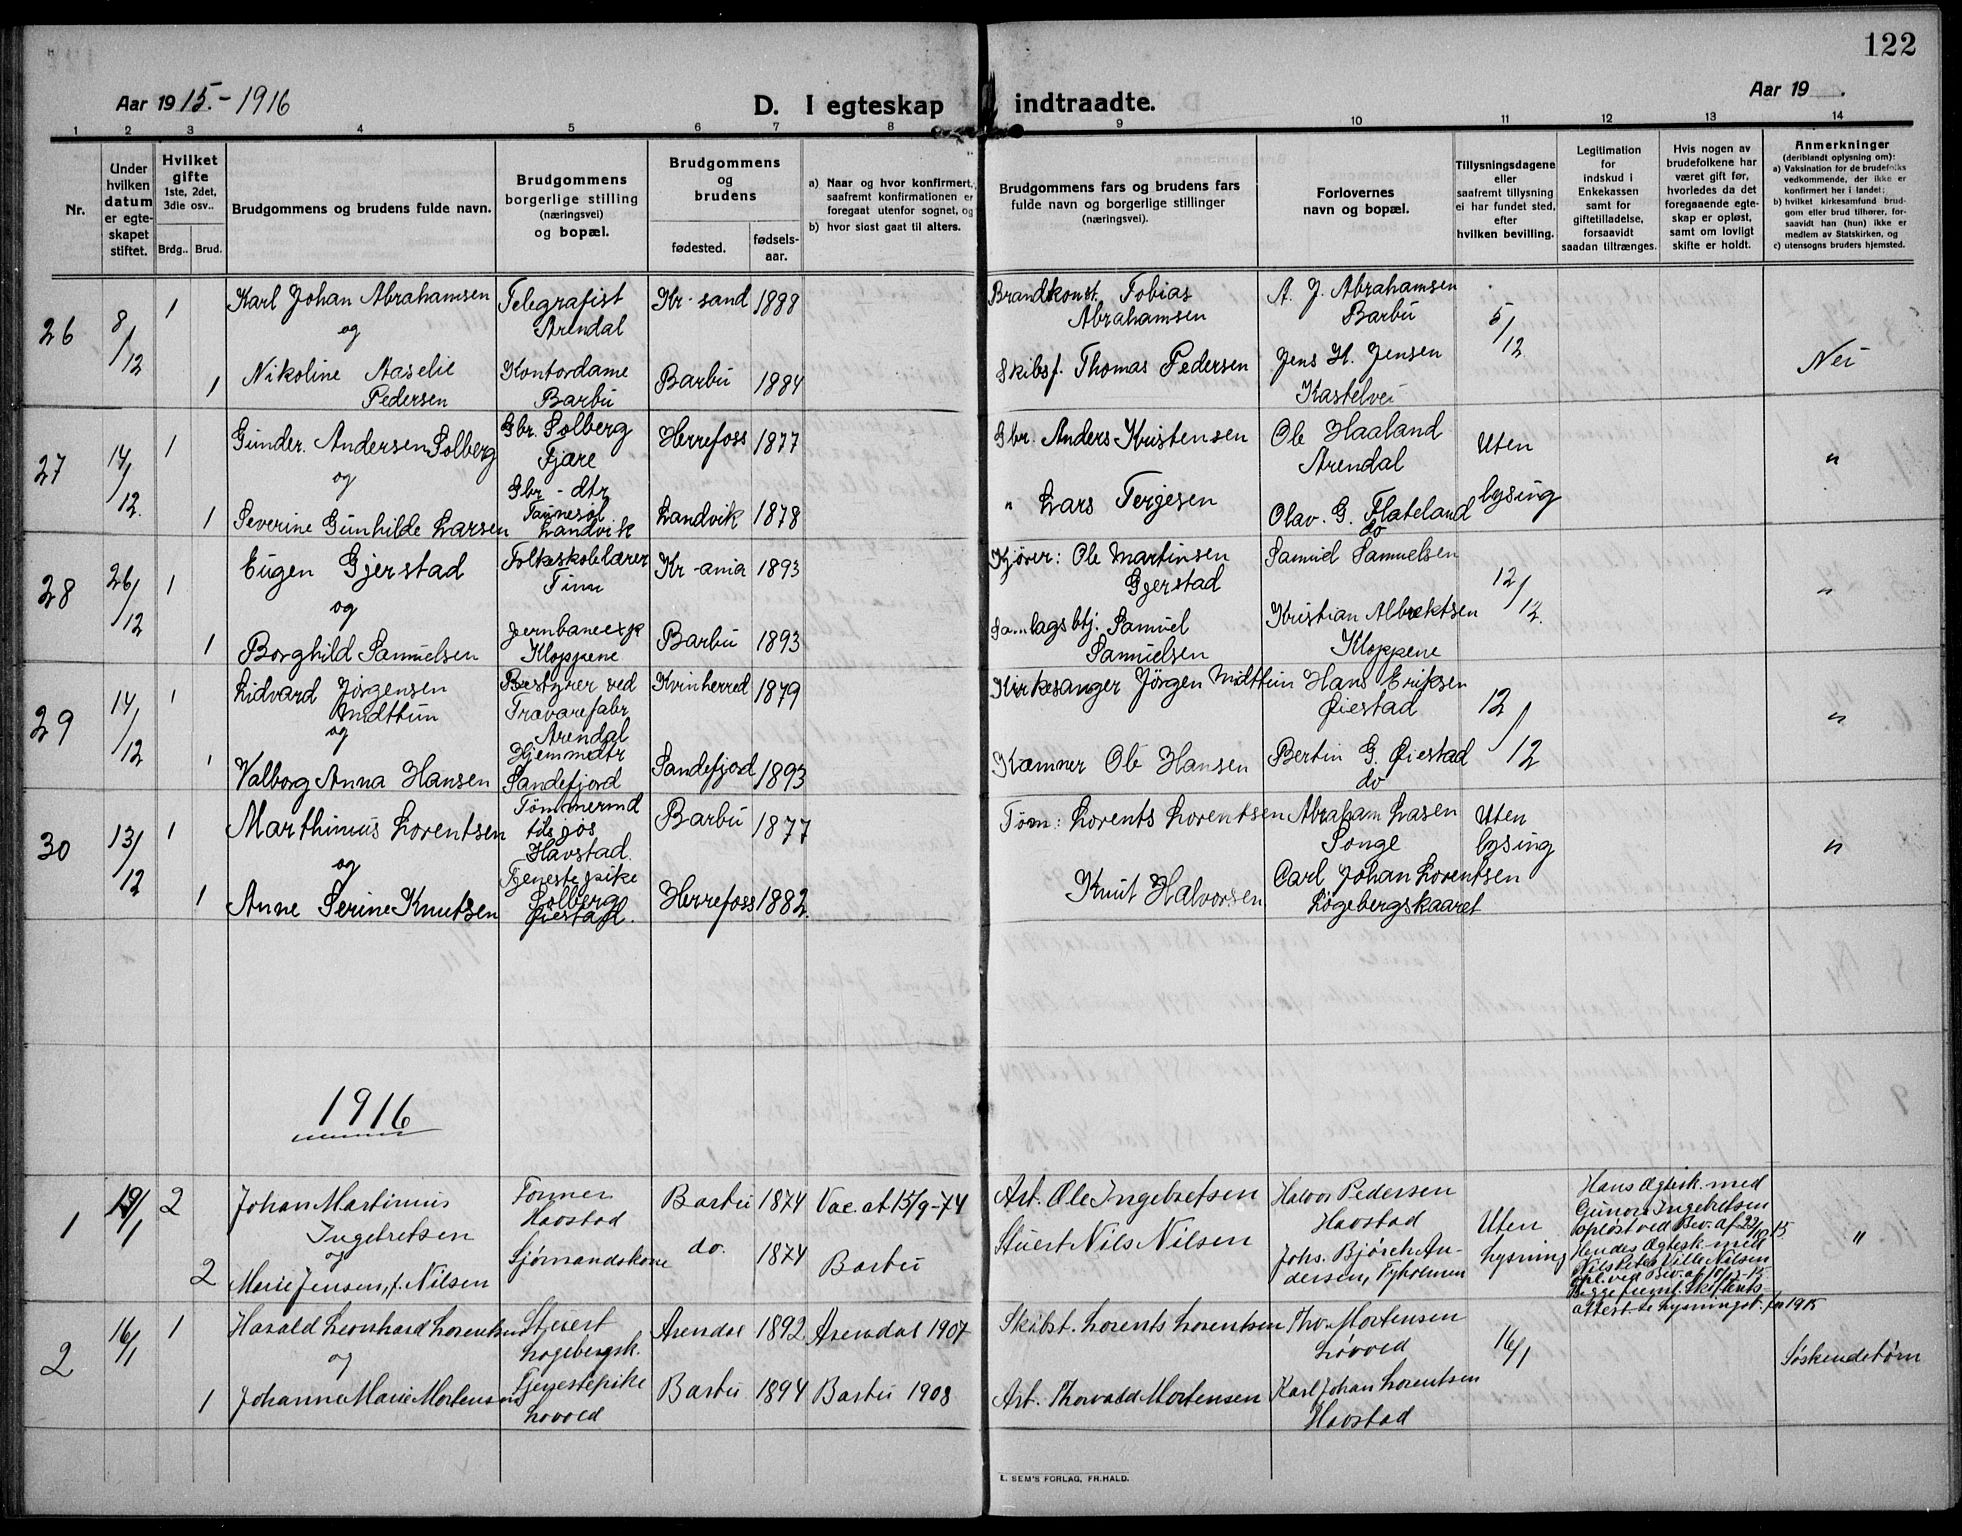 122
Aar 1915.-1916
D. I egteskap indtraadte.
Aar 19 .
1 2 3 4 5 6 7 8 9 10 11 12 13 14
Nr.
Under hvilken datum er egte-skapet stiftet.
Hvilket gifte
1ste, 2det, 3die osv..
Brdg.. Brud.
Brudgommens og brudens fulde navn.
Brudgommens borgerlige stilling (næringsvei) og bopæl.
Brudgommens og brudens
fødested. fødsels-aar.
a) Naar og hvor konfirmert, saafremt konfirmationen er foregaat utenfor sognet, og
b) hvor sidst gaat til alters.
Brudgommens fars og brudens fars fulde navn og borgerlige stillinger (næringsvei).
Forlovernes navn og bopæl.
Tillysningsdagene eller saafremt tillysning ei har fundet sted, efter hvilken bevilling.
Legitimation for indskud i Enkekassen samt for giftetilladelse, forsaavidt saadan tiltrænges.
Hvis nogen av brudefolkene har været gift før, hvorledes da det foregaaende egte-skap er opløst, samt om lovligt skifte er holdt.
Anmerkninger
(deriblandt oplysning om):
a) Vaksination for de brudefolks vedkommende, der ikke er konfirmert her i landet;
b) hvilket kirkesamfund brud-gom eller brud tilhører, for-saavidt han (hun) ikke er medlem av Statskirken, og
c) utensogns bruders hjemsted.
26 8/12 1 Karl Johan Abrahamsen Telegrafist Arendal Kr-sand 1888 Brandkonst. Tobias Abrahamsen A. J. Abrahamsen Barbu 5/12 Nei
og
1 Nikoline Aaselie Pedersen Kontordame Barbu Barbu 1884 Skibsf. Thomas Pedersen Jens H. Jensen Kastelvei
27 14/12. 1 Gunder. Andersen Solberg Gbr. Solberg Fjære Herrefoss 1877 Gbr. Anders Kristensen Ole Haaland Arendal Uten lysing "
og
1 Severine Gunhilde Larsen Gbr-dtr Landvik Landvik 1878 " Lars Terjesen Olav. G. Flateland do
28 26/12 1 Eugen Gjerstad Folkeskolelærer Tinn Kr-ania 1893 Kjører: Ole Martinsen Gjerstad Samuel Samuelsen 12/12. "
og
1 Borghild Samuelsen Jernbaneexp Kloppene Barbu 1893 Samuel Samuelsen Kristian Albrektsen Kloppene
29 14/12 1 Lidvard Jørgensen Midttun Bestyrer ved Trævarefabr Arendal Kvinherred 1879 Kirkesanger Jörgen Midttun Hans Eriksen Øiestad 12/12 "
og
1 Valborg Anna Hansen Hjemmedtr Sandefjord Sandefjord 1893 Kæmner Ole Hansen Bertin G. Øiestad do
30 13/12 1 Marthinius Lorentsen Tömmermd Havstad. Barbu 1877 Tøm: Lorents Lorentsen Abraham Lasen Songe Uten lysing "
og
1 Anne Serine Knutsen Tjenestepike Solberg Øiestad. Herrefoss 1882. Knut Halvorsen Carl Johan Lorentsen Løgebergskaaret
1916
1 19/1 2 Johan Martinius Ingebretsen Former Havstad Barbu 1874 Vac. at 15/9-74 Arb. Ole Ingebretsen Halvor Pedersen Havstad Uten Lysning Hans Ægtesk. med Gunora Ingebretsen opløst ved Bev. af 22/10 15 "
og
2 Marie Jensen, f. Nilsen Sjømandskone do. 1874 Barbu Stuert Nils Nilsen Johs. Bjørch Andersen, Tyholmen Hendes Ægtesk. med Nils Peter Nilsen
2 16/1 1 Harald Leonhard Lorentsen Stuert Logebergsk. Arendal 1892 Arendal 1907 Skibst. Lorents Lorentsen Thv. Mortensen Løvold 16/1 Søskendebørn
og
1 Johanne Marie Mortensen Tjenestepike Lovold Barbu 1894 Barbu 1908 Arb. Thorvald Mortensen Karl Johan Lorentsen Havstad
E. SEM'S FORLAG, FR.HALD.